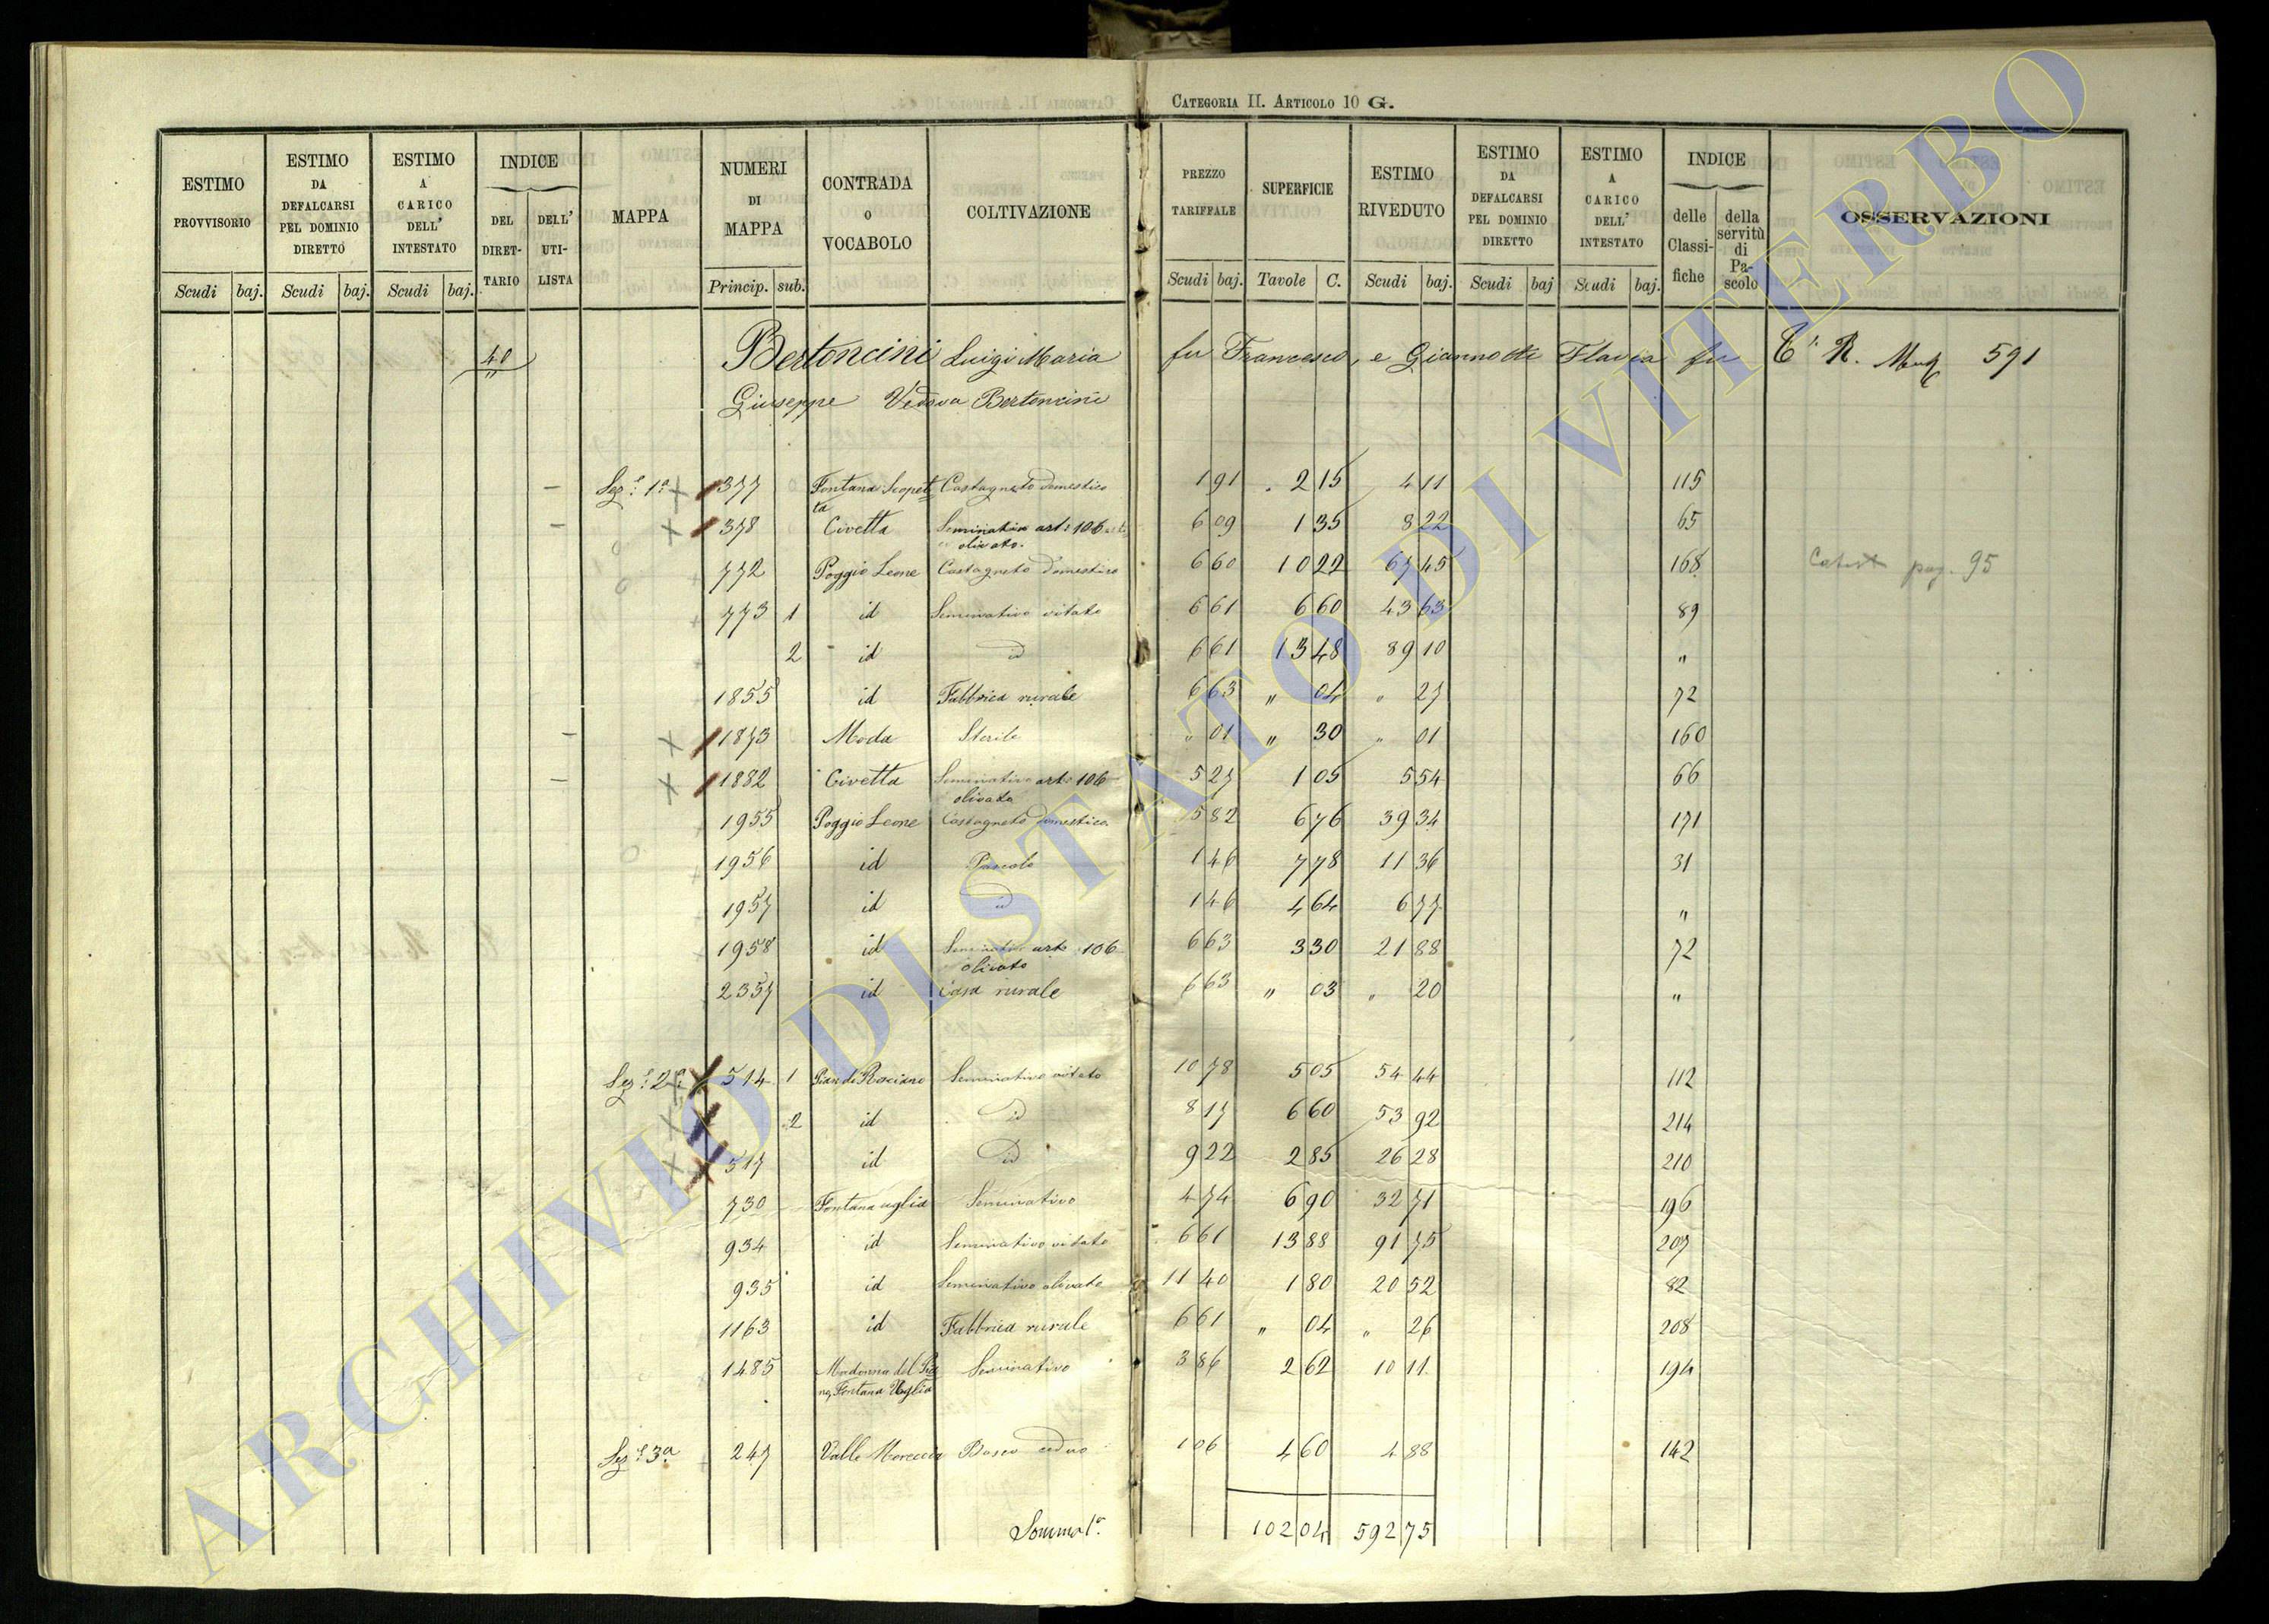 CATEGORIA II. ARTICOLO 10 G.
ESTIMO PROVVISORIO | ESTIMO DA DEFALCARSI PEL DOMINIO DIRETTO | ESTIMO A CARICO DELL' INTESTATO | INDICE DEL DIRET-TARIO | DELL' UTI-LISTA | MAPPA | NUMERI DI MAPPA | CONTRADA O VOCABOLO | COLTIVAZIONE | PREZZO TARIFFALE | SUPERFICIE | ESTIMO RIVEDUTO | ESTIMO DA DEFALCARSI PEL DOMINIO DIRETTO | ESTIMO A CARICO DELL' INTESTATO | INDICE delle Classi-fiche | della servitù di Pa-scolo | OSSERVAZIONI
Scudi baj. Scudi baj. Scudi baj. Princip. sub. Scudi baj. Tavole C. Scudi baj. Scudi baj Scudi baj.
40 Bertoncini Luigi Maria fu Francesco, e Giannotti Flavia fu 591
Giuseppe Vedova Bertoncini
Sez.e 1a 377 Fontana Scopetta Castagneto domestico 1 91 2 15 4 11 115
378 Civetta Seminativo art: 106 olivato. 6 09 1 35 8 22 65
772 Poggio Leone Castagneto domestico 6 60 10 22 67 45 168 pag. 95
773 1 id Seminativo vitato 6 61 6 60 43 63 89
2 id id 6 61 13 48 89 10 "
1855 id Fabbrica rurale 6 63 " 04 " 27 72
1873 Moda Sterile " 01 " 30 " 01 160
1882 Civetta Seminativo art: 106 olivato 5 27 1 05 5 54 66
1955 Poggio Leone Castagneto domestico 5 82 6 76 39 34 171
1956 id Pascolo 1 46 7 78 11 36 31
1957 id id 1 46 4 64 6 77 "
1958 id Seminativo arto 106 olivato 6 63 3 30 21 88 72
2357 id Casa rurale 6 63 " 03 " 20 "
Sez.e 2a 514 1 Pian di Rosciano Seminativo vitato 10 78 5 05 54 44 112
2 id id 8 17 6 60 53 92 214
517 id id 9 22 2 85 26 28 210
730 Fontana uglia Seminativo 4 74 6 90 32 71 196
934 id Seminativo vitato 6 61 13 88 91 75 207
935 id Seminativo olivato 11 40 1 80 20 52 82
1163 id Fabbrica rurale 6 61 " 04 " 26 208
1485 Madonna del Fontana Uglia Seminativo 3 86 2 62 10 11 194
Sez.e 3a 247 Valle Bosco ceduo 1 06 4 60 4 88 142
Somma 1a 102 04 592 75
ARCHIVIO DI STATO DI VITERBO